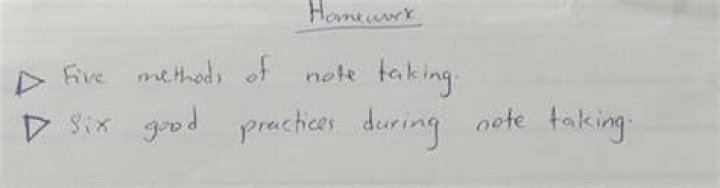 Homework
Five methods of note taking.
Six good practices during note taking.